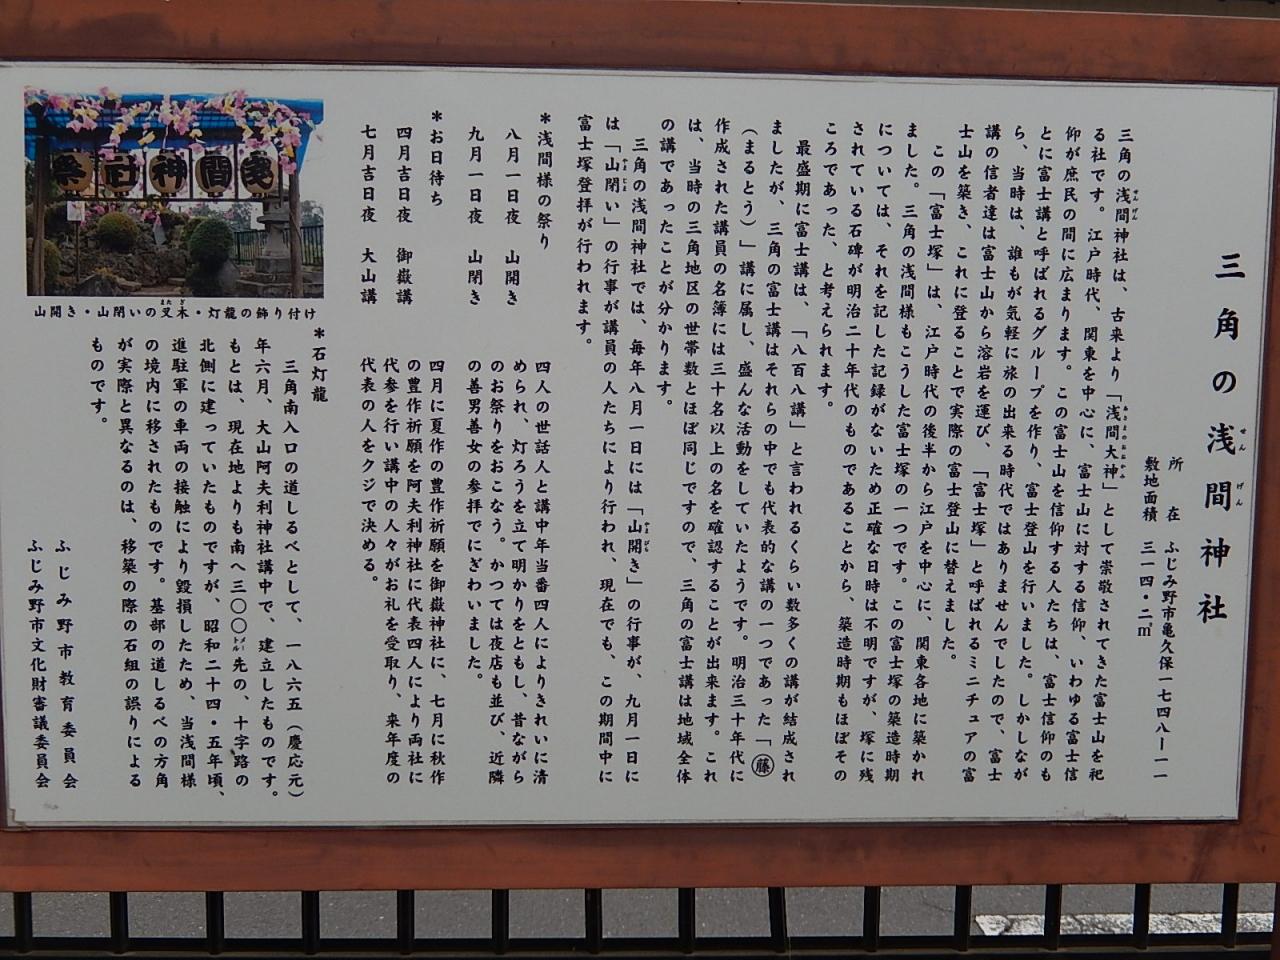 三角の浅間神社
せんげん
所在　ふじみ野市亀久保一七四八ー一一
敷地面積　三一四・二㎡
三角の浅間神社は、古来より「浅間大神」として崇敬されてきた富士山を祀
せんげん
る社です。江戸時代、関東を中心に、富士山に対する信仰、いわゆる富士信
仰が庶民の間に広まります。この富士山を信仰する人たちは、富士信仰のも
とに富士講と呼ばれるグループを作り、富士登山を行いました。しかしなが
ら、当時は、誰もが気軽に旅の出来る時代ではありませんでしたので、富士
講の信者達は富士山から溶岩を運び、「富士塚」と呼ばれるミニチュアの富
士山を築き、これに登ることで実際の富士登山に替えました。
この「富士塚」は、江戸時代の後半から江戸を中心に、関東各地に築かれ
ました。三角の浅間様もこうした富士塚の一つです。この富士塚の築造時期
については、それを記した記録がないため正確な日時は不明ですが、塚に残
されている石碑が明治二十年代のものであることから、築造時期もほぼその
ころであった、と考えられます。
最盛期に富士講は、「八百八講」と言われるくらい数多くの講が結成され
ましたが、三角の富士講はそれらの中でも代表的な講の一つであった「㊞藤
（まるとう）」講に属し、盛んな活動をしていたようです。明治三十年代に
作成された講員の名簿には三十名以上の名を確認することが出来ます。これ
は、当時の三角地区の世帯数とほぼ同じですので、三角の富士講は地域全体
の講であったことが分かります。
三角の浅間神社では、毎年八月一日には「山開き」の行事が、九月一日に
やまびら
は「山閉い」の行事が講員の人たちにより行われ、現在でも、この期間中に
やまじまい
富士塚登拝が行われます。
＊浅間様の祭り
八月一日夜　山開き
九月一日夜　山閉き
四人の世話人と講中年当番四人によりきれいに清
められ、灯ろうを立て明かりをともし、昔ながら
のお祭りをおこなう。かつては夜店も並び、近隣
の善男善女の参拝でにぎわいました。
＊お日待ち
四月吉日夜　御嶽講
七月吉日夜　大山講
四月に夏作の豊作祈願を御嶽神社に、七月に秋作
の豊作祈願を阿夫利神社に代表四人により両社に
代参を行い講中の人々がお礼を受取り、来年度の
代表の人をクジで決める。
浅間神社祭
山開き・山閉いの叉木・灯籠の飾り付け
またぎ
＊石灯籠
三角南入口の道しるべとして、一八六五（慶応元）
年六月、大山阿夫利神社講中で、建立したものです。
もとは、現在地よりも南へ三〇〇㍍先の、十字路の
北側に建っていたものですが、昭和二十四・五年頃、
進駐軍の車両の接触により毀損したため、当浅間様
の境内に移されたものです。基部の道しるべの方角
が実際と異なるのは、移築の際の石組の誤りによる
ものです。
ふじみ野市教育委員会
ふじみ野市文化財審議委員会